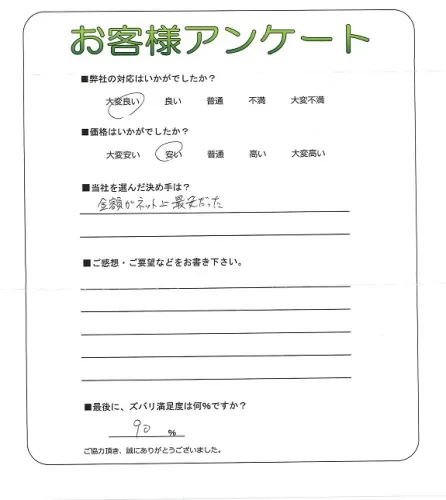 お客様アンケート
■弊社の対応はいかがでしたか?
大変良い 良い 普通 不満 大変不満
■価格はいかがでしたか?
大変安い 安い 普通 高い 大変高い
■当社を選んだ決め手は?
金額がネット上最安だった
■ご感想・ご要望などをお書き下さい。
■最後に、ズバリ満足度は何%ですか?
90 %
ご協力頂き、誠にありがとうございました。